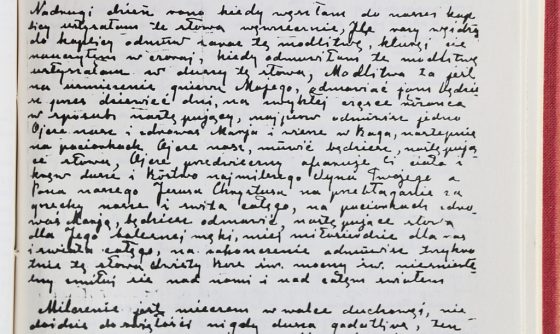 Na drugi dzień rano kiedy weszłam do naszej kap-
licy usłyszałam te słowa wewnetrznie, Ile razy wejdziesz
do kaplicy odmów zaraz tę modlitwę, której cię
nauczyłem wczoraj, kiedy odmówiłam tę modlitwę
usłyszałam w duszy te słowa, Modlitwa ta jest
na uśmierzenie gniewu Mojego, odmawiać ją będzie
sz przez dziewięć dni, na zwykłej cząstce różańca
w sposób następujący, najpierw odmówisz jedno
Ojcze nasz i zdrowaś Maryja i wierzę w Boga, następnie
na paciorkach, Ojcze nasz, mówić będziesz, następują-
ce słowa, Ojcze przedwieczny ofiaruje Ci ciało i
krew duszę i Bóstwo najmilszego Syna Twojego a
Pana naszego Jezusa Chrystusa, na przebłaganie za
grzechy nasze i świata całego, na paciorkach zdro-
waś Maryja, będziesz odmawiać, następujące słowa
dla Jego bolesnej męki, miej miłosierdzie dla nas
i świata całego, na zakończenie odmówisz trzykro
tnie te słowa święty Boże św. mocny św. nieśmierte
lny zmiłuj się nad nami i nad całym światem
Milczenie jest mieczem w walce duchowej, nie-
dojdzie do świętości nigdy dusza gadatliwa, ten